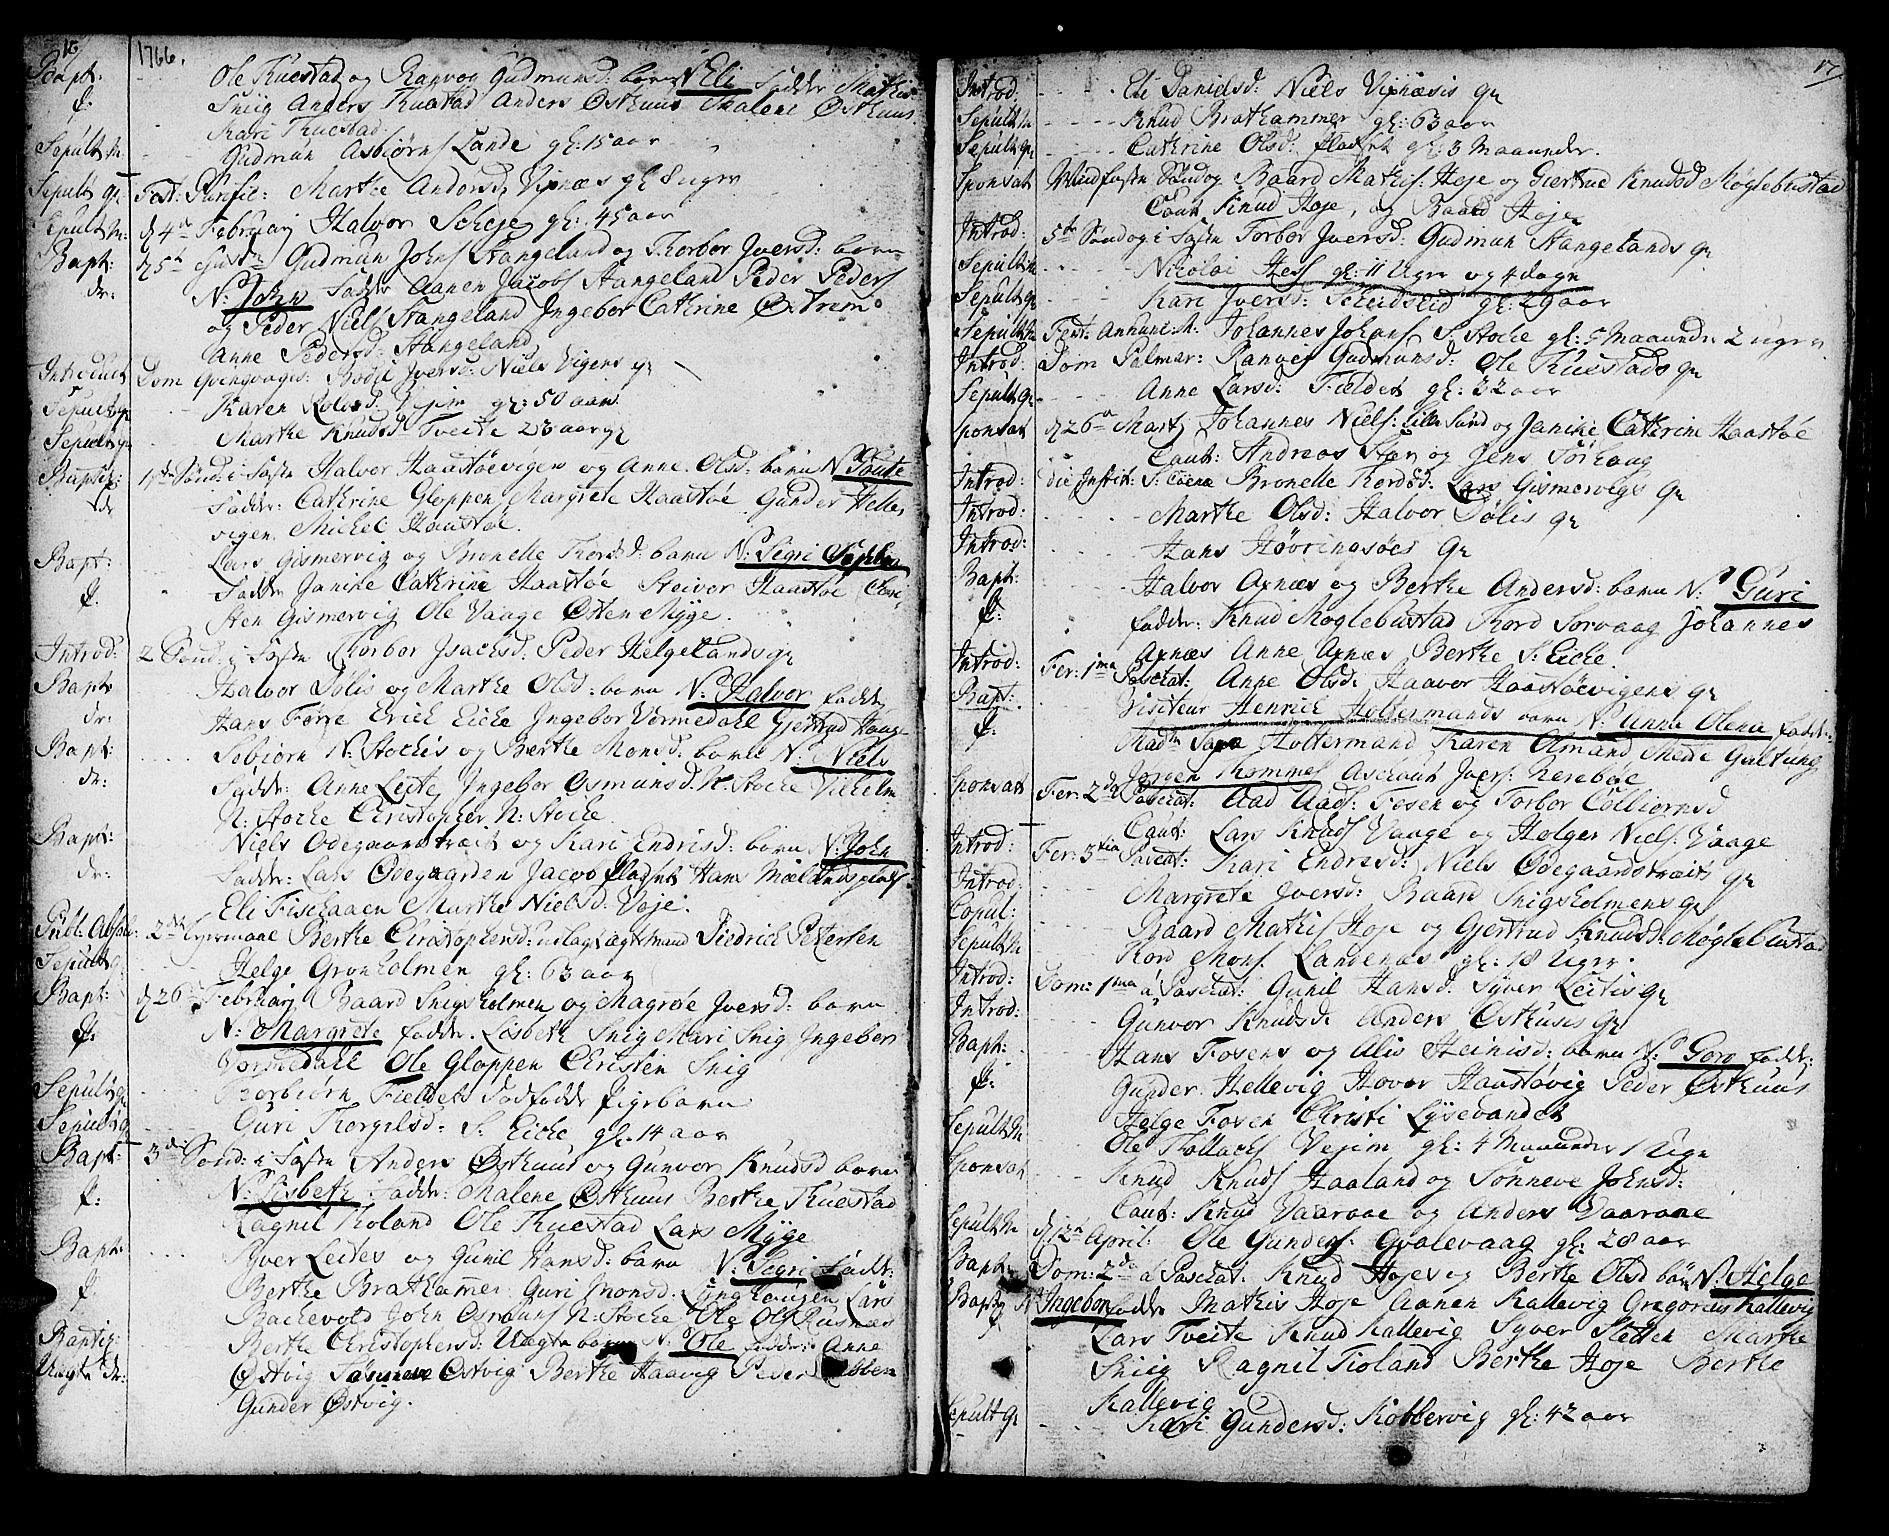 16 1766.
Bapt: Ole Tuestad og Ranvog Gudmunsd: barn N: Eli Fadder Mathis
f: Sniig Anders Tuestad Anders Østhuus Malene Østhuus
Kari Tuestad
Sepult: M: Gudmun Asbiørns Lande gl: 15 aar
Sepult qv Fest: Purific: Marthe Andersd Vixnæs gl 8 uger
Sepult M: d 4de Februarj Halvor Scheje gl: 45 aar
Bapt: d 5te Gudmun Johns Stangeland og Thorbor Jversd: barn
dr: N: John Fadder Aanen Jacobs Stangeland Peder Peders
og Peder Niels Stangeland Ingebor Cathrine
Anne Pedersd: Stangeland
Introduct Dom Qvinqvages: Bodil Jversd: Niels Vigens q
Sepult q Karen Rolvsd: Vejim gl: 50 aar
Sepult q Marthe Knudsd Tveite 23 aar
Baptiz: 1ste Sønd: i Fasten Halvor Haastøevigen og Anne Olsd: barn N:
dr Fadder: Cathrine Gloppen Margrete Haastøe Gunder Helle
vigen Michel Haastøe
Bapt: Lars Gismervig og Bronelle Thordsd: barn N: Segri Sophia
f. Fadder Janike Cathrine Haastøe Steivor Haastøe Chri
sten Gismervig Ole Vaage Østen Myge
Introd: 2 Sønd: i Fasten Thorbor Jsachsd: Peder Helgelands q
Bapt: Halvor Dølis og Marthe Olsd: barn N: Halvor Fadd:
dr: Hans Førre Erich Eicke Ingebor Vormedahl Gjertrud Hauge
Bapt: Sebiørn N. Stochis og Berthe Monsd: barn N: Niels
dr: Fadder: Anne Leite Jngebor Osmunsd. N. Stocke Vilhelm
N: Stocke Christopher N: Stocke
Bapt: Niels Ødegaardstræit og Kari Endrisd: barn N: John
dr: Fadder: Lars Ødegaarden Jacob Fladset Hans Mælandsplads
Eli Fischaaen Marthe Nielsd: Veje.
Publ: Absol: 2de Lejermaal Berthe Christophersd: udlagt ægtemand Diedrich Petersen
Sepult Helge Grønholmen gl: 63 aar
Bapt: d 26 Februarj Baard Snigsholmen og Magrete Jversd: barn
f: N: Margrete Fadder: Lisbeth Snig Mari Snig Jngebor
Vormedahl Ole Gloppen Christen Snig
Sepult q Thorbiørn Fieldets dødfødde Pigebarn
Sepult q Guri Thorgilsd: S: Eicke gl: 14 aar
Bapt: 3de Sønd: i Fasten Anders Østhuus og Gunvor Knudsd barn
f: N: Lisbeth Fadder: Malene Østhuus Berthe Thuestad
Ragnil Kioland Ole Thuestad Lars Myge
Bapt: Syver Leites og Gunil Hansd: barn N: Segri Fadd:
f. Berthe Brathammer Guri Monsd: Linghougen Lars
Bachevold John Osmuns N: Stocke Ole Ols Rusnæs
Baptiz: Berthe Christophersd: Uægte barn N: Ole Fadder: Anne
Uægte dr: Østvig Sønneve Østvig Berthe Haavig Peder
Gunder Østvig.
17
Introd: Eli Danielsd: Niels Vixnæsis q
Sepult M Knud Brathammer gl: 63 aar
Sepult q Cathrine Olsd: Fladset gl: 3 Maaneder.
Sponsat Midfaste Søndag Baard Mathis: Hoje og Giertrud Knudsd Møglebustad
Caut Knud Hoje, og Baard Hoje
Introd: 5te Søndag i Fasten Torbor Jversd: Gudmun Stangelands q
Sepult M Nicolai Hess gl: 11 Uger og 4 dage
Sepult q Kari Jversd: Scheidsleid gl: 29 aar
Sepult M Fest: Annunc: M. Johannes Johans S. Stocke gl: 5 Maaneder 2 uger
Introd. Dom Palmar: Ranvei Gudmunsd: Ole Thuestads q
Sepult q Anne Larsd: Fieldet gl: 32 aar
Sponsat d 26de Martj Johannes Niels: Lille Sund og Janike Cathrine Haastøe
Caut: Andreas Star og Jens Sørhaug
Introd: die Instit: S: Coenæ Bronelle Thordsd. Lars Gismervigs q
Introd: Marthe Olsd: Halvor Dølis q
Introd: Hans Høvringsøes q
Bapt: Halvor Axnæs og Berthe Andersd: barn N: Guri
f: Fadder: Knud Møglebustad Thord Sørvaag Johannes
Axnæs Anne Axnæs Berthe S: Eicke.
Introd: Fer: 1ma Paschat: Anne Olsd: Haavor Haastøevigens q
Bapt: Visiteur Henrich Holtermands barn N: Anna Olena Fadd:
f: Mad: Holtermand Karen Olmand Mette Galtung
Jørgen Thommes Aschout Jvers: Rerebøe
Sponsat Fer: 2da Paschat: Aad Aads: Fosen og Torbor Colbiornsd
Caut: Lars Knuds Vaage og Holger Niels Vaage
Introd: Fer: 3tia Paschat: Kari Endresd: Niels Ødegaardstræits q
Introd: Margrete Jversd: Baard Snigsholmens q
Copul: Baard Mathis Hoje og Gjertrud Knudsd: Møglebustad
Sepult M Thord Mons. Landenæs gl: 18 Uger.
Introd: Dom: 1ma á Paschat: Gunil Hansd: Syver Leitis q
Introd: Gunvor Knudsd Anders Østhusis q
Bapt: Hans Fosens og Alis Steinisd: barn N: Goro Fadd:
f: Gunder Hellevig Hover Haastøvig Peder Østhuus
Helge Fosen Christi Lysevandet
Sepult M Ole Follachs Vejim gl: 4 Maaneder 1 Uge
Sponsat Knud Knuds Haaland og Sønneve Johnsd:
Caut: Knud Vaaraae og Anders Vaaraae
Sepult M d 12te April: Ole Gunders: Qvalevaag gl: 28 aar
Bapt: Dom: 2da á Paschat. Knud Hojes og Berthe Olsd børn N: Helge
Bapt og N: Ingebor Fadder Mathis Hoje Aanen Kallevig Gregorius Kallevig
f Lars Tveite Knud Kallevig Syver Sletten Marthe
Sniig Ragnil Kioland Berthe Hoje Berthe
Kallevig
Sepult q Kari Gundersd: Kobbervig gl: 42 aar